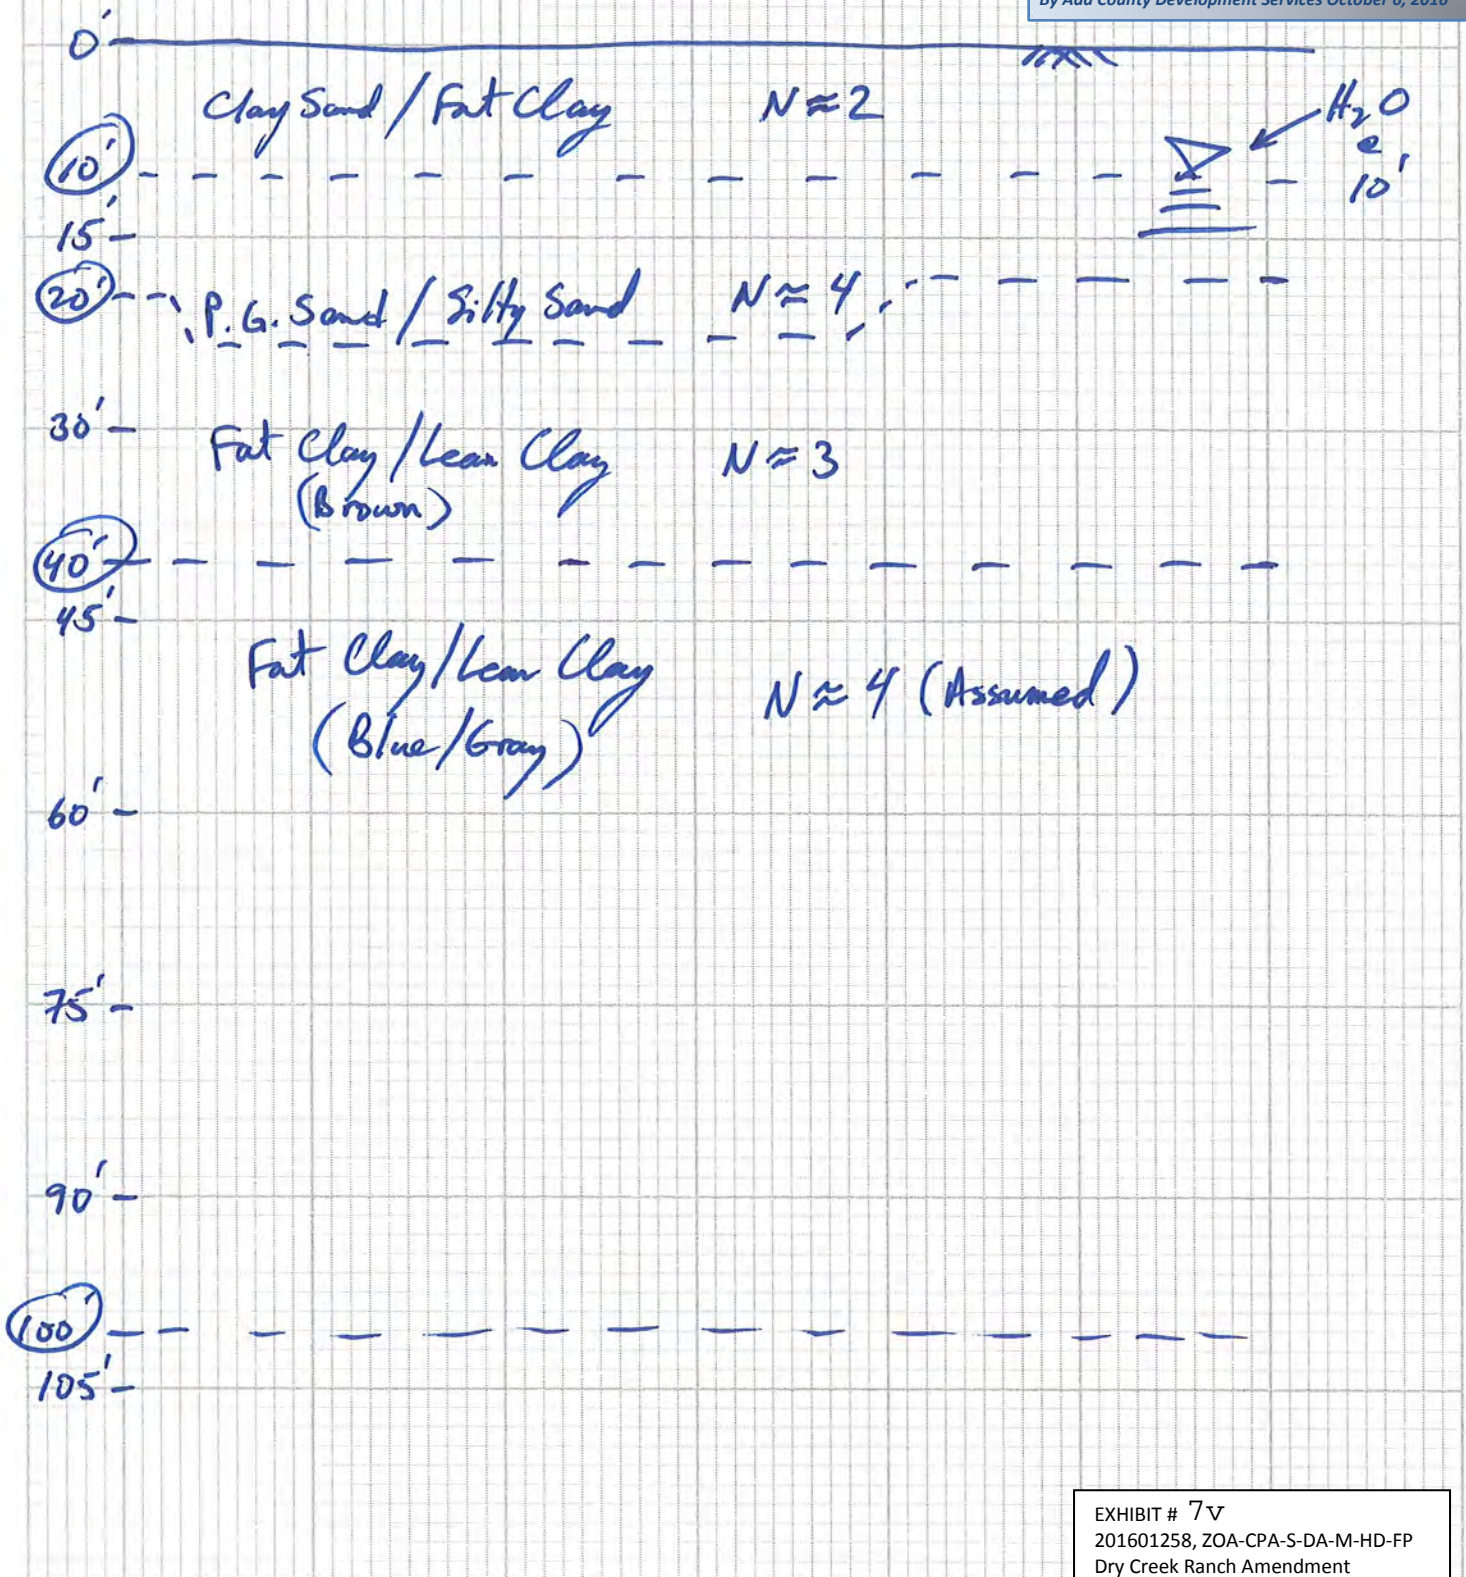 By Ada County Development Services October 6, 2016
0'
Clay Sand / Fat Clay N ≈ 2
H₂O
@
10'
10'
15'
20'
P.G. Sand / Silty Sand N ≈ 4
30'
Fat Clay / Lean Clay N ≈ 3
(Brown)
40'
45'
Fat Clay / Lean Clay
N ≈ 4 (Assumed)
(Blue/Gray)
60'
75'
90'
100'
105'
EXHIBIT # 7V
201601258, ZOA-CPA-S-DA-M-HD-FP
Dry Creek Ranch Amendment